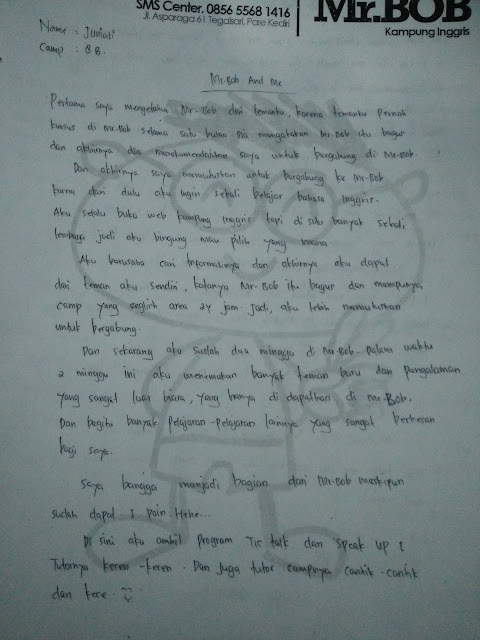 SMS Center. 0856 5568 1416
Jl. Asparaga 61 Tegalsari, Pare Kediri
Mr.BOB
Kampung Inggris
Name : Juniati
Camp : BB.
Mr.Bob And Me
Pertama saya mengetahui Mr.Bob dari temanku, karena temanku pernah
kursus di Mr.Bob selama satu bulan Dia mengatakan Mr.Bob itu bagus
dan akhirnya dia merekomendasikan saya untuk bergabung di Mr.Bob.
Dan akhirnya saya memutuskan untuk bergabung ke Mr.Bob
karna dari dulu aku ingin sekali belajar bahasa Inggris.
Aku selalu buka web kampung Inggris tapi di situ banyak sekali
lembaga jadi aku bingung mau pilih yang mana.
Aku berusaha cari informasinya dan akhirnya aku dapat
dari teman aku sendiri, katanya Mr.Bob itu bagus dan mempunyai
camp yang english area 24 jam. Jadi, aku telah memutuskan
untuk bergabung.
Dan sekarang aku sudah dua minggu di Mr.Bob. Dalam waktu
2 minggu ini aku menemukan banyak teman baru dan pengalaman
yang sangat luar biasa, yang hanya di dapatkan di Mr.Bob.
Dan begitu banyak pelajaran-pelajaran lainnya yang sangat berkesan
bagi saya.
Saya bangga menjadi bagian dari Mr.Bob meskipun
sudah dapat 3 poin Hehe...
Di sini aku ambil program Tic talk dan Speak UP 1
Tutornya keren-keren. Dan juga tutor campnya cantik-cantik
dan kece.